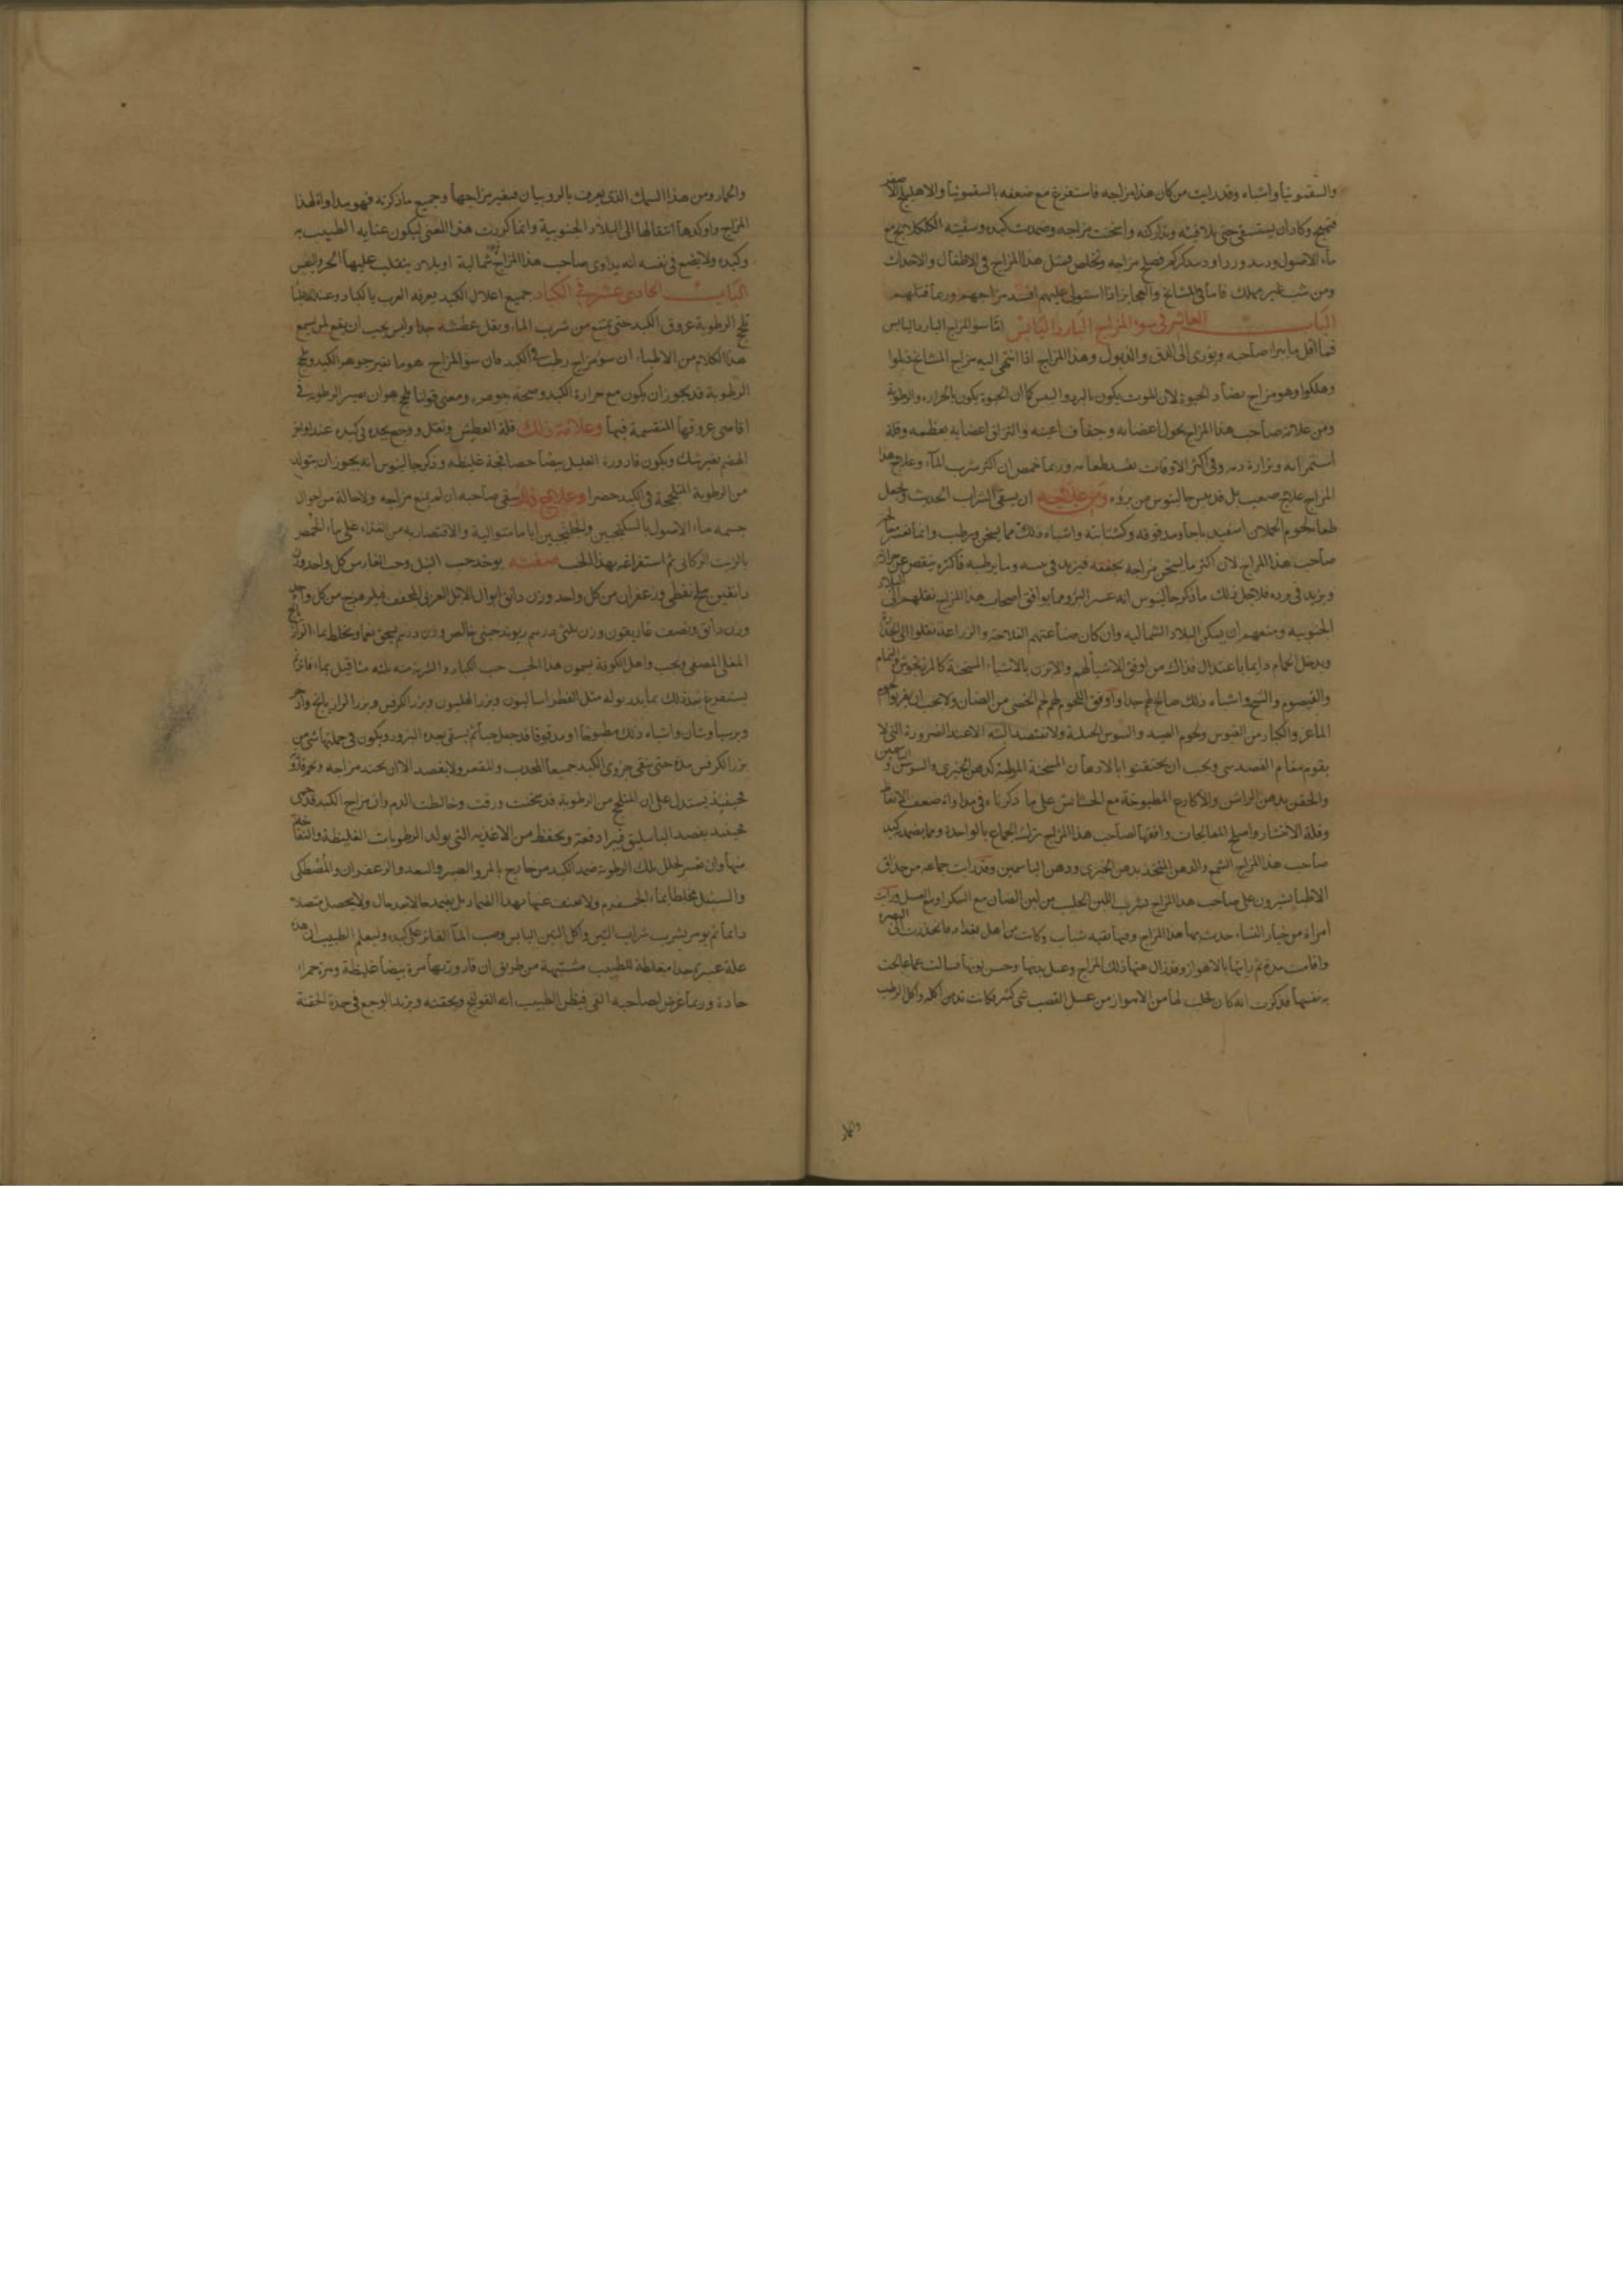 والسقمونيا واشباه وقد رايت من كان هذا مزاجه فاستفرغ مع ضعفه بالسقمونيا والاهليلج الاصفر
وكاد ان يستسقى حتى تلافيته وتداركته واسخنت مزاجه وضمدت كبده وسقيته الكلكلانج مع
ماء الاصول ودبيد ورد ودبيد كركم فصلح مزاجه وتخلص فمثل هذا المزاج فى الاطفال والاحداث
ومن شب غير مهلك فاما فى المشايخ والعجايز اذا استولى عليهم افسد مزاجهم وربما قتلهم
الباب العاشر فى سوء المزاج البارد اليابس امّا سوء المزاج البارد اليابس
فما اقل ما يبرا صاحبه ويؤدى الى الدق والذبول وهذا المزاج اذا انتهى اليه مزاج المشايخ ذبلوا
وهلكوا وهو مزاج يضاد الحيوة لان الموت يكون بالبرد واليبس كما ان الحيوة يكون بالحرارة والرطوبة
ومن علامة صاحب هذا المزاج نحول اعضائه وجفاف اعينه والتزاق اعضايه بعظمه وقلة
استمرائه ونزارة دمه وفى اكثر الاوقات يفسد طعامه وربما حمض ان اكثر شرب الماء وعلاج هذا
المزاج علاج صعب بل قد يئس جالينوس من برؤه ومن علاجه ان يسقى الشراب الحديث ويجعل
طعامه لحوم الحملان اسفيدباجا ومدقوقة وكشتابية واشباه ذلك مما يسخن ويرطب وانما تعسر علاج
صاحب هذا المزاج لان اكثر ما يسخن مزاجه يجففه فيزيد فى يبسه وما يرطبه فاكثره ينقص عن حرارته
ويزيد فى برده فلاجل ذلك ما ذكر جالينوس انه عسر البرؤ ومما يوافق اصحاب هذا المزاج نقلهم الى البلاد
الجنوبية ومنعهم ان يسكن البلاد الشمالية وان كان صناعتهم الفلاحة والزراعة نقلوا الى
ويدخل الحمام دايما باعتدال فذاك من اوفق الاشياء لهم والابزن بالاشياء المسخنة كالمرزنجوش والنمام
والقيصوم والشيح واشباه ذلك صالح لهم جدا واوفق اللحوم لهم لحم الخصى من الضان ولا يجب ان يقربوا لحوم
الماعز والكبار من التيوس ولحوم الصيد والسوس الجبلية ولا يفتصد البتة الا عند الضرورة التى لا
يقوم مقام الفصد شى ويجب ان يحتقنوا بالادهان المسخنة المرطبة كدهن الخيرى والسوسن والياسمين
والحقن بدهن الراس والاكارع المطبوخة مع الحشائش على ما ذكرناه فى مداواة ضعف الانعاظ
وقلة الانتشار واصلح المعالجات واوفقها لصاحب هذا المزاج ترك الجماع بالواحدة ومما يضمد كبد
صاحب هذا المزاج الشمع والدهن المتخذ بدهن الخيرى ودهن الياسمين وقد رايت جماعة من حذاق
الاطبا يشيرون على صاحب هذا المزاج بشرب اللبن الحليب من لبن الضان مع السكر او مع العسل ورايت
امراة من خيار النساء حدث بها هذا المزاج وفيها بقية شباب وكانت من اهل بغداد فانحدرت الى البصرة
واقامت مدة ثم رايتها بالاهواز وقد زال عنها ذلك المزاج وعبل بدنها وحسن لونها فسالت عما عالجت
به نفسها فذكرت انه كان يجلب لها من الاهواز من عسل القصب شى كثير فكانت تدمن اكله واكل الرطب
والخمار
والخمار ومن هذا السمك الذى يعرف بالروبيان فتغير مزاجها وجميع ما ذكرته فهو مداواة لهذا
المزاج واوكدها انتقالها الى البلاد الجنوبية وانما كررت هذا المعنى ليكون عناية الطبيب به
وكيده ولا يضع فى نفسه انه يداوى صاحب هذا المزاج شمالية او بلاد يتقلب عليها الحر واليبس
الباب الحادى عشر فى الكباد جميع اعلال الكبد يعرفه العرب بالكباد وعند الاطبا
تلجج الرطوبة عروق الكبد حتى يمتنع من شرب الماء ويقل عطشه جدا وليس يجب ان يقع لمن يسمع
هذا الكلام من الاطباء ان سوء مزاج رطب فى الكبد فان سوء المزاج هو ما تغير جوهر الكبد وتلجج
الرطوبة قد يجوز ان يكون مع حرارة الكبد وصحة جوهره ومعنى قولنا تلجج هو ان يصير الرطوبة فى
اقاصى عروقها المنقسمة فيها وعلامة ذلك قلة العطش وثقل ووجع يجده فى كبده عند
الهضم بغير شك ويكون قارورة العليل بيضا فجة غليظة وذكر جالينوس انه يجوز ان يتولد
من الرطوبة المتلججة فى الكبد حصا وعلاج ذلك سقى صاحبه ان لم يمنع مزاجه ولا حالة من احوال
جسمه ماء الاصول بالسكنجبين والخلنجبين اياما متوالية والاقتصار به من الغذاء على ماء الحمص
بالزيت الركابى ثم استفراغه بهذا الحب صفته يوخذ حب النيل وحب الغار من كل واحد وزن
دانقين ملح نفطى وزعفران من كل واحد وزن دانق ابوال الابل العربى المجفف فيلزهرج من كل واحد
وزن دانق ونصف غاريقون وزن ثلثى درهم ريوند صينى خالص وزن درهم يسحق نعما ويخلط بماء الرازيانج
المغلى المصفى ويحبب واهل الكوفة يسمون هذا الحب حب الكباد والشربة منه ثلثه مثاقيل بماء فاتر ثم
يستفرغ بعد ذلك بما يدر بوله مثل الفطراساليون وبزر الهليون وبزر الكرفس وبزر الرازيانج
وبرسياوشان واشباه ذلك مطبوخا او مدقوقا قد جعل حبا ثم يسقى بعده البزور ويكون فى جملتها شى من
بزر الكرفس مدة حتى ينقى جزوى الكبد جميعا المحدب والمقعر ولا يفصد الا ان يحتد مزاجه
فحينئذ يستدل على ان المتلجج من الرطوبة قد سخنت ورقت وخالطت الدم وان مزاج الكبد قد حمى
فحينئذ يفصد الباسليق ويحفظ من الاغذيه التى يولد الرطوبات الغليظة
منها وان تعسر تحلل تلك الرطوبة ضمد الكبد من خارج بالمر والصبر والسعد والزعفران والمصطكى
والسنبل مخلطا بماء ولا يعنف عنها بهذا الضماد بل يضمد حالا بعد حال ولا يجعل متصلا
دايما ثم يومر بشرب شراب التين واكل التين اليابس وصب الماء الفاتر على كبده وليعلم الطبيب ان هذه
علة عسرة جدا مغلطة للطبيب مشتبهة من طريق ان قارورتها مرة بيضا غليظة ومرة حمراء
حادة وربما عرض لصاحبه القى فيظن الطبيب انه القولنج ويحقنه ويزيد الوجع فى حدة الحقنة